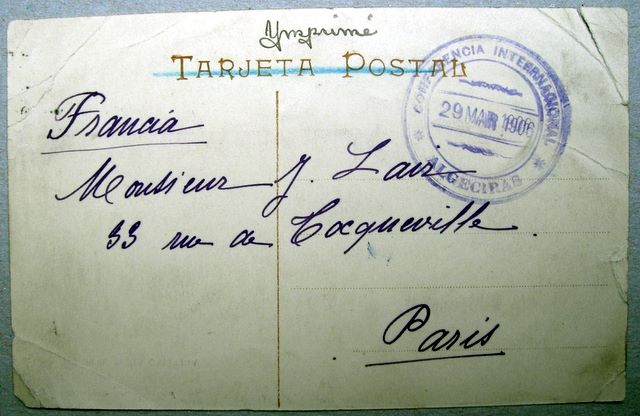 Imprimé
TARJETA POSTAL
CONFERENCIA INTERNACIONAL
29 MAR 1906
ALGECIRAS
Francia
Monsieur J. Lair
33 rue de Tocqueville
Paris